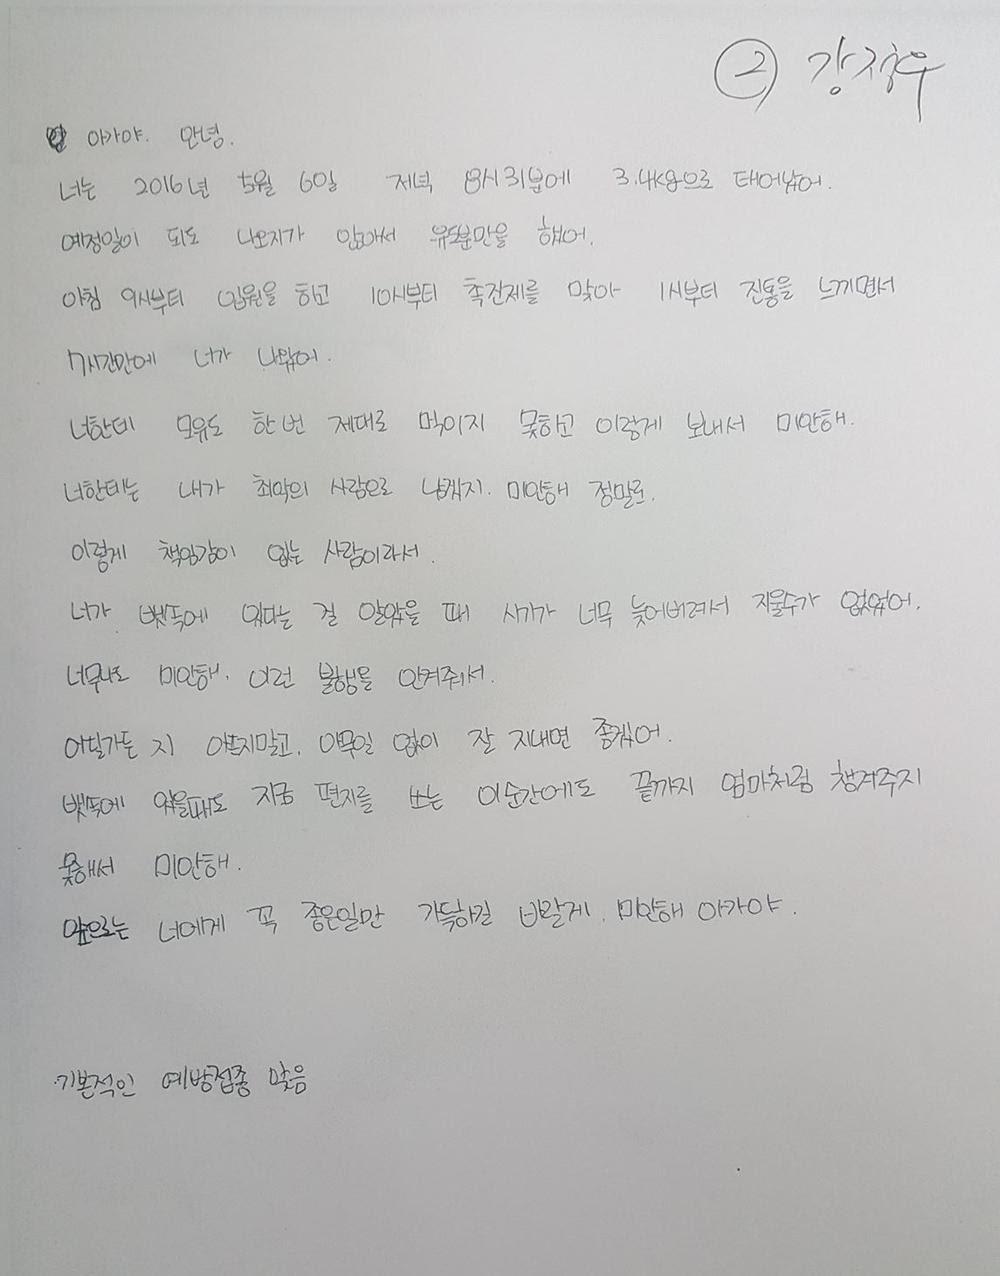 ② 강정우
아가야. 안녕.
너는 2016년 5월 6일 저녁 8시31분에 3.4kg으로 태어났어.
예정일이 되도 나오지가 않아서 유도분만을 했어.
아침 9시부터 입원을 하고 10시부터 촉진제를 맞아 1시부터 진통을 느끼면서
7시간만에 너가 나왔어.
너한테 모유도 한번 제대로 먹이지 못하고 이렇게 보내서 미안해.
너한테는 내가 최악의 사람으로 남겠지. 미안해 정말로.
이렇게 책임감이 없는 사람이라서.
너가 뱃속에 있다는 걸 알았을 때 시기가 너무 늦어버려서 지울수가 없었어.
너무나도 미안해. 이런 불행을 안겨줘서.
어딜가든 지 아프지말고, 아무일 없이 잘 지내면 좋겠어.
뱃속에 있을때도 지금 편지를 쓰는 이순간에도 끝까지 엄마처럼 챙겨주지
못해서 미안해.
앞으로는 너에게 꼭 좋은일만 가득하길 바랄게. 미안해 아가야.
기본적인 예방접종 맞음